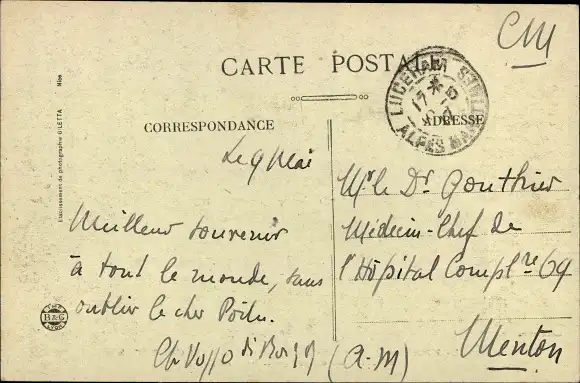 CM
CARTE POSTALE
LUCERAM
ALPES MAR
CORRESPONDANCE
ADRESSE
Le 9 Mai
Meilleur souvenir
à tout le monde, sans
oublier le cher Poilu.
Mr le Dr Gonthier
Médecin-Chef de
l'Hôpital Complre 69
Menton
(A-M)
L'établissement de photographie GILETTA Nice
IMP
B&G
LYON